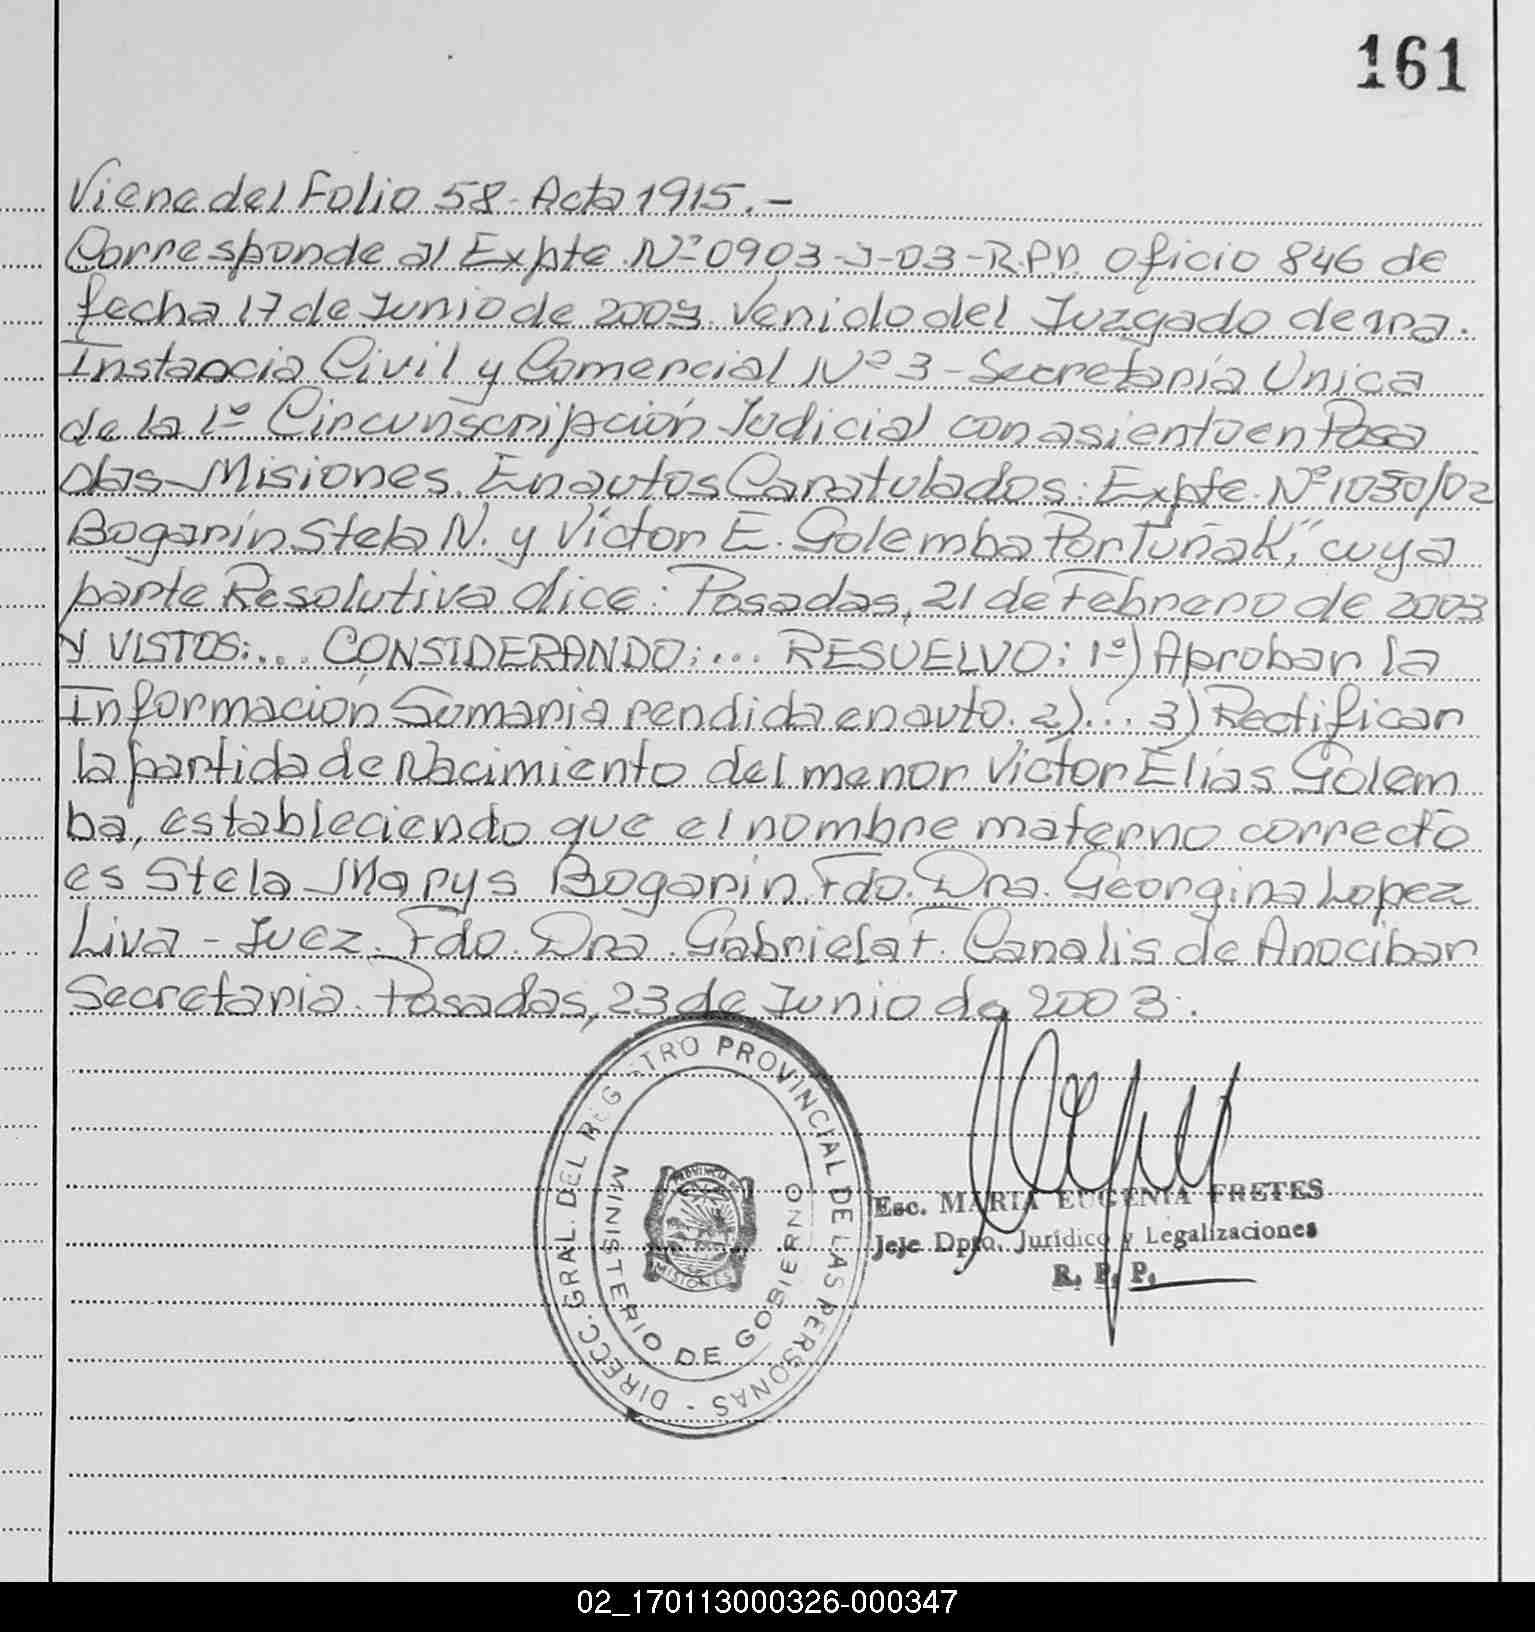 161
Viene del Folio 58 - Acta 1915.-
Corresponde al Expte Nº 0903-J-03-R.P.P. oficio 846 de
fecha 17 de Junio de 2003. Venido del Juzgado de 1ra.
Instancia Civil y Comercial Nº 3 - Secretaría Unica
de la 1º Circunscripción Judicial con asiento en Posa
das - Misiones. En autos Caratulados: Expte. Nº 1030/02
Bogarín Stela N. y Víctor E. Golemba Portuñak", cuya
parte Resolutiva dice: Posadas, 21 de Febrero de 2003
Y VISTOS:... CONSIDERANDO:... RESUELVO: 1º) Aprobar la
Información Sumaria rendida en auto. 2)... 3) Rectificar
la partida de Nacimiento del menor Víctor Elías Golem
ba, estableciendo que el nombre materno correcto
es Stela Marys Bogarín. Fdo. Dra. Georgina Lopez
Liva - Juez. Fdo. Dra. Gabriela F. Canalis de Anocibar
Secretaria. Posadas, 23 de Junio de 2003.
DIRECC. GRAL. DEL REGISTRO PROVINCIAL DE LAS PERSONAS -
MINISTERIO DE GOBIERNO
PROVINCIA DE
MISIONES
Esc. MARIA EUGENIA FRETES
Jefe Dpto. Jurídico y Legalizaciones
R. P. P.
02_170113000326-000347